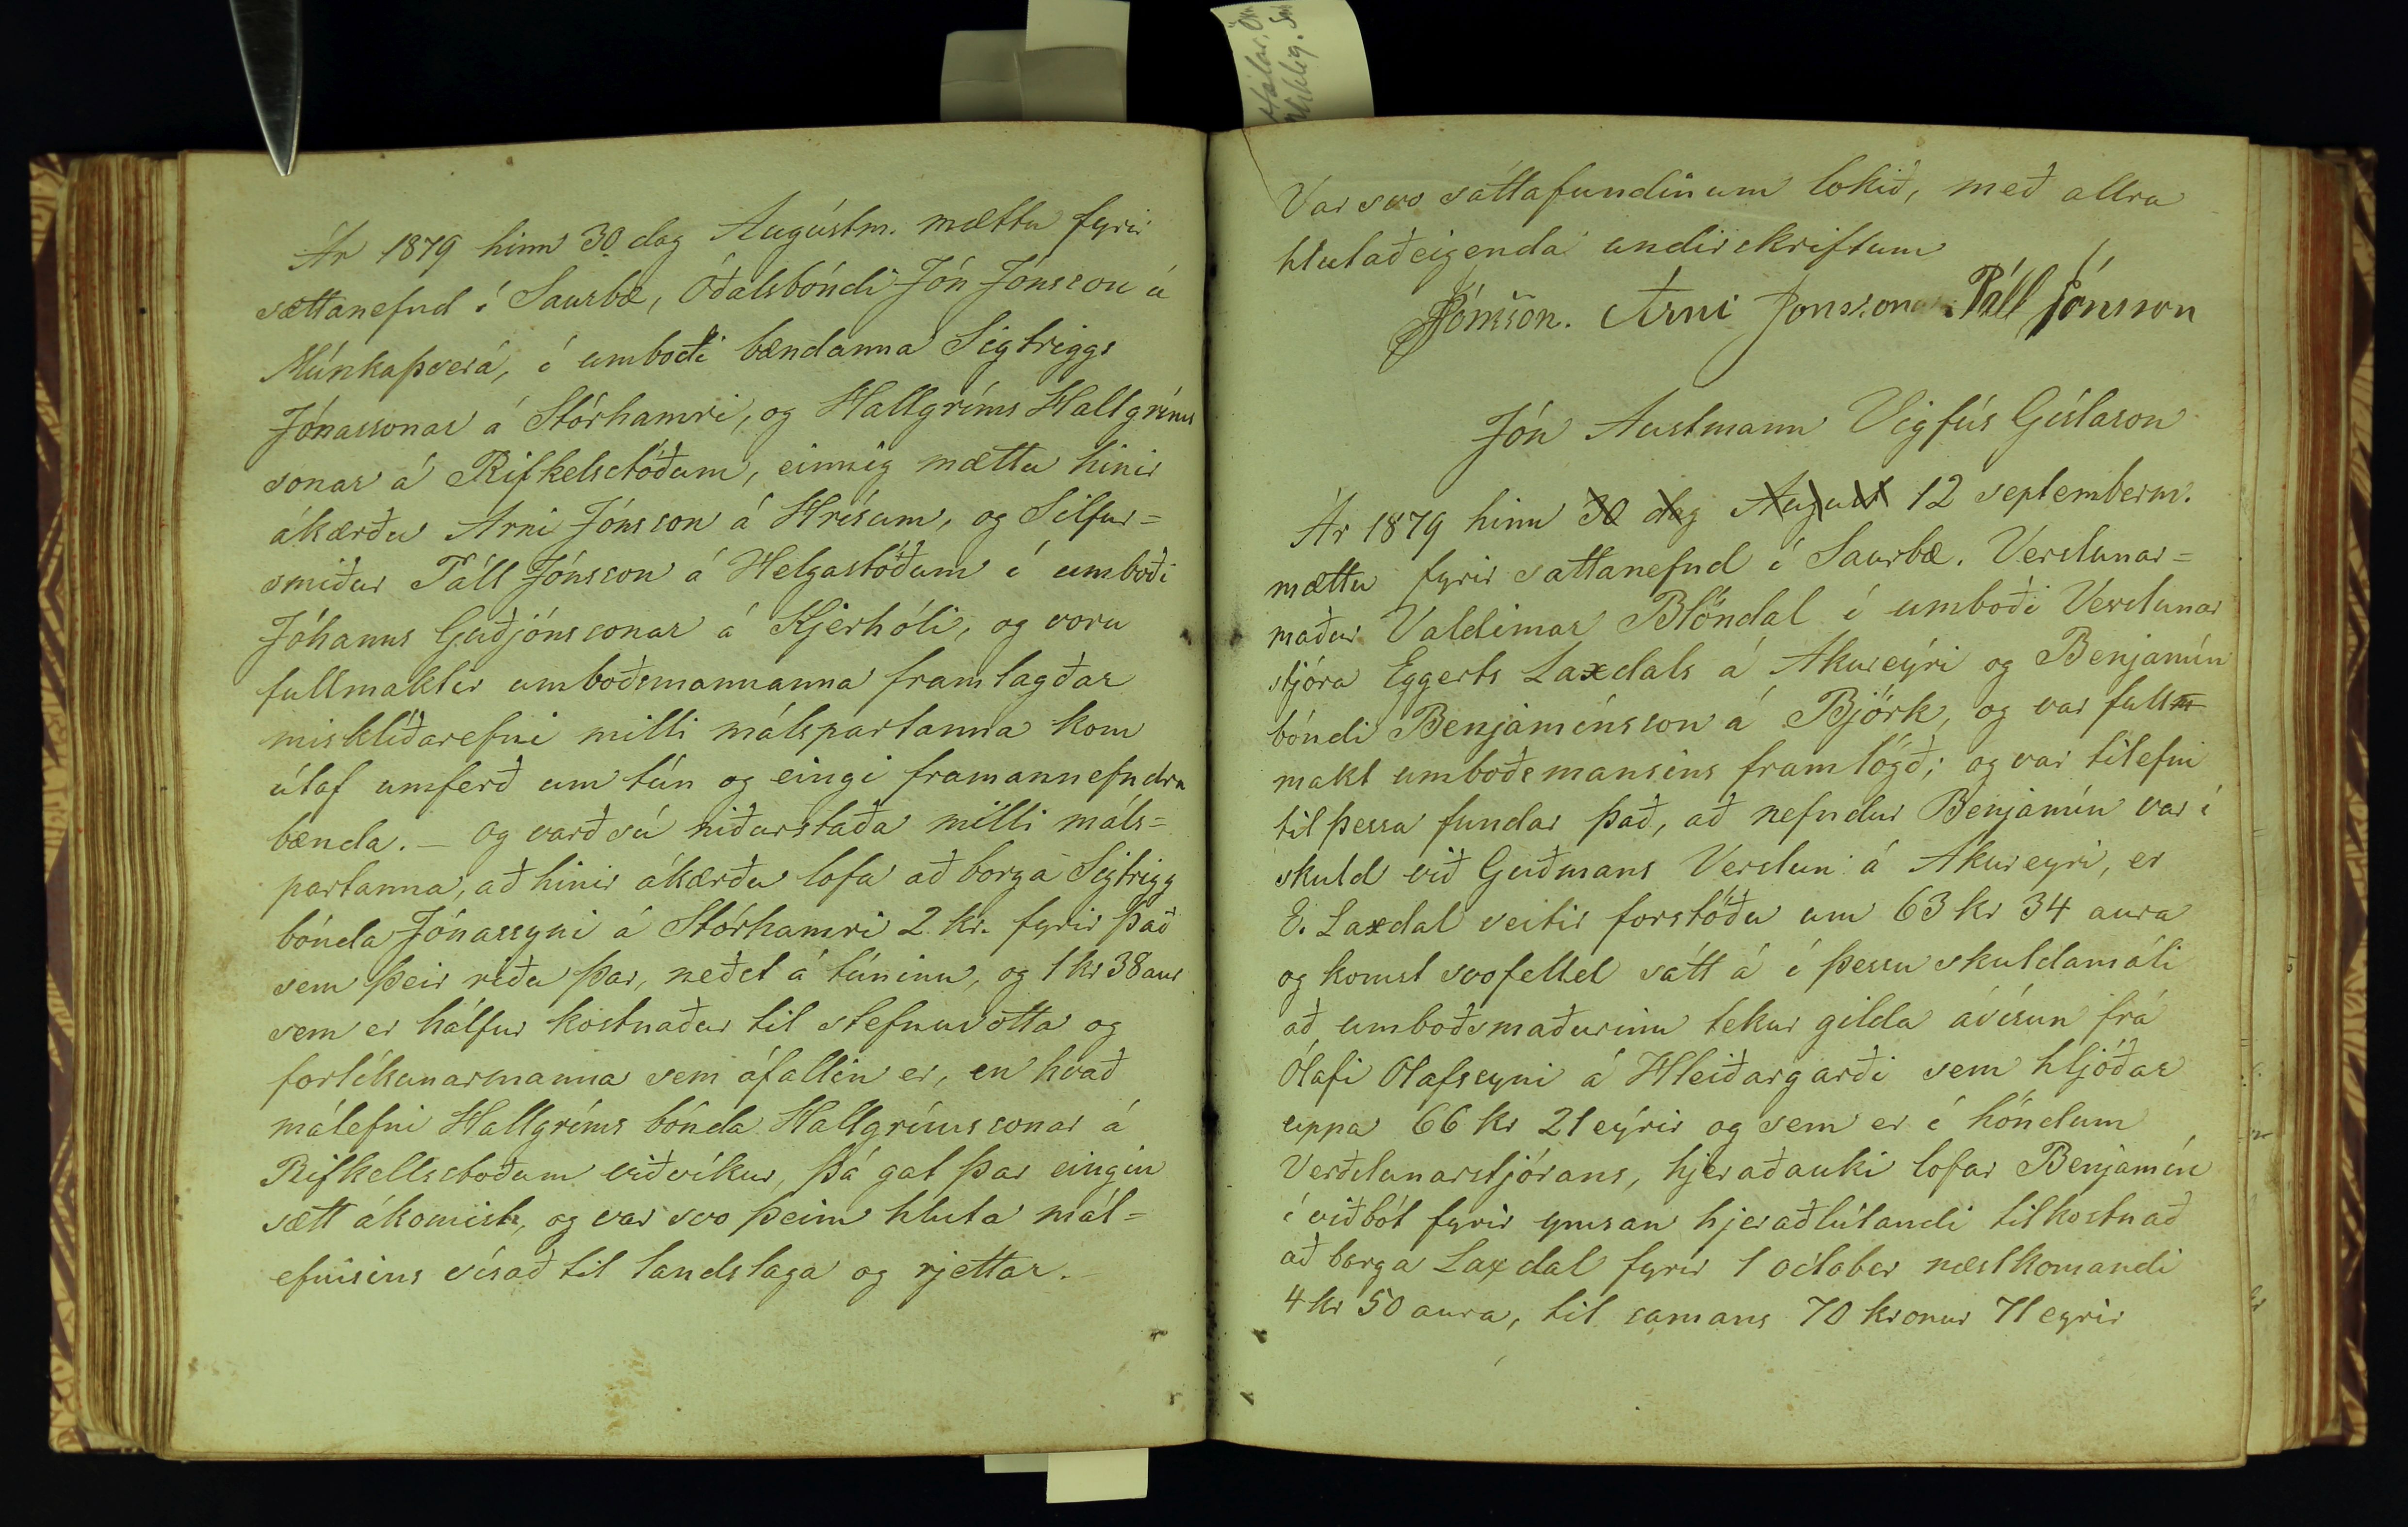 Ár 1879 hinn 30 dag Augústm. mættu fyrir
sættanefnd í Saurbæ, Óðalsbóndi Jón Jónsson á
Múnkaþverá, í umboði bændanna Sigtriggs
Jónassonar á Stórhamri, og Hallgríms Hallgríms
sonar á Rifkelsstöðum, einnig mættu hinir
ákærðu Arni Jónsson á Hrísum, og Silfur=
smiður Páll Jónsson á Helgastöðum í umboði
Jóhanns Guðjónssonar á Kjerhóli, og voru
fullmaktir umboðsmannanna framlagðar
misklíðarefni milli málspartanna kom
útaf umferð um tún og eingi framannefndra
bænda. – og varð sú niðurstaða milli máls=
partanna, að hinir ákærðu lofa að borga Sigtrigg
bónda Jónassyni á Stórhamri 2 kr. fyrir það
sem þeir riðu þar, neðst á túninu, og 1 kr 38 aur
sem er hálfur kostnaður til stefnuvotta og
forlíkunarmanna sem áfallin er, en hvað
málefni Hallgríms bónda Hallgrímssonar á
Rifkellsstoðum viðvíkur, þá gat þar eingin
sætt ákomist, og var svo þeim hluta mál=
efnisins vísað til landslaga og rjettar.
Var svo sáttafundinum lokið, með allra
hlutaðeigenda undirskriftum
JJónsson. Árni Jonsson Páll Jónsson
Jón Austmann Vigfús Gíslason
Ár 1879 hinn 30 dag August 12 septemberm.
mættu fyrir sattanefnd í Saurbæ. Verslunar=
maður Valdimar Blöndal í umboði Verslunar
stjóra Eggerts Laxdals á Akureýri og Benjamín
bóndi Benjamínsson á Björk, og var fullm
makt umboðsmansins framlögð; og var tilefni
til þessa fundar það, að nefndur Benjamín var í
skuld við Guðmans Verslun á Akureyri, er
E. Laxdal veitir forstöðu um 63 kr 34 aura
og komst svofelld sátt á í þessu skuldamáli
að umboðsmaðurinn tekur gilda ávísun frá
Ólafi Olafssyni á Hleiðargarði sem hljóðar
uppa 66 kr 21 eýrir og sem er í höndum
Verðslunarstjórans, hjeraðauki lofar Benjamín
í viðbót fyrir ymsan hjeraðlútandi tilkostnað
að borga Laxdal fyrir 1 october næstkomandi
4 kr 50 aura, til samans 70 kronur 71 eyrir